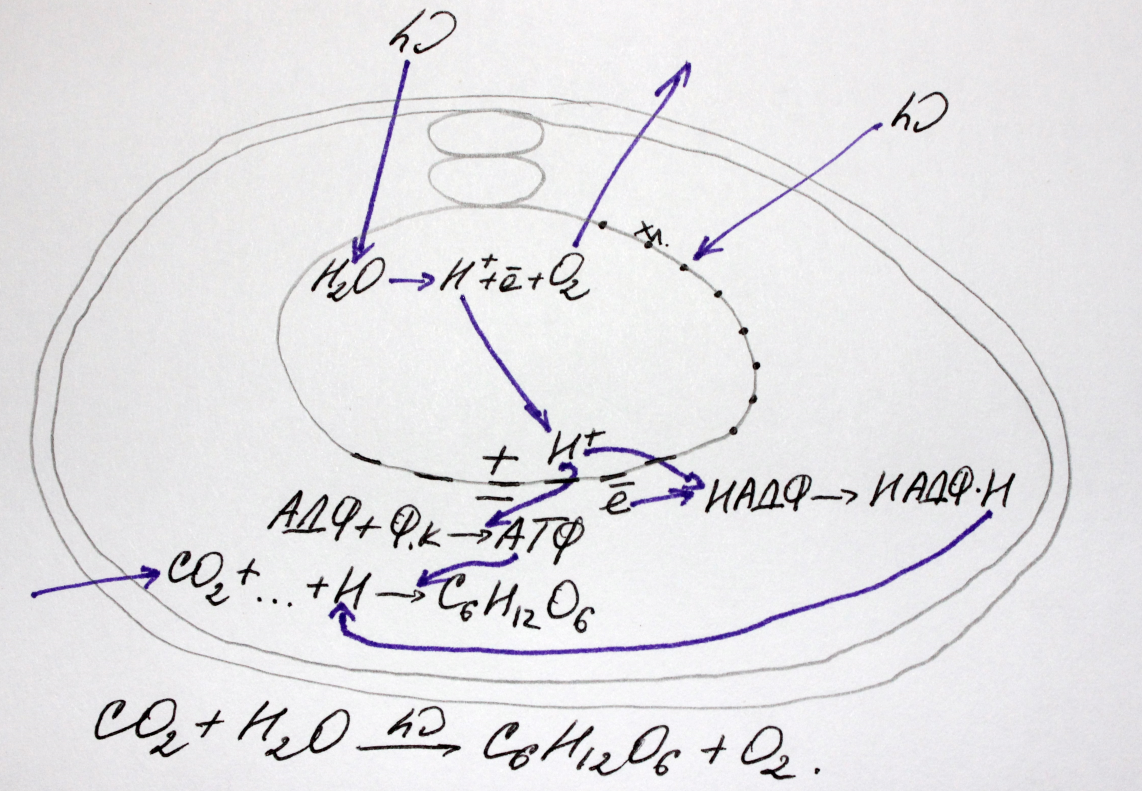 hν
hν
хл.
H₂O → H⁺ + ē + O₂
+ H⁺
− ē НАДФ → НАДФ·Н
АДФ + Ф.к → АТФ
CO₂ + ... + H → C₆H₁₂O₆
CO₂ + H₂O hν → C₆H₁₂O₆ + O₂.